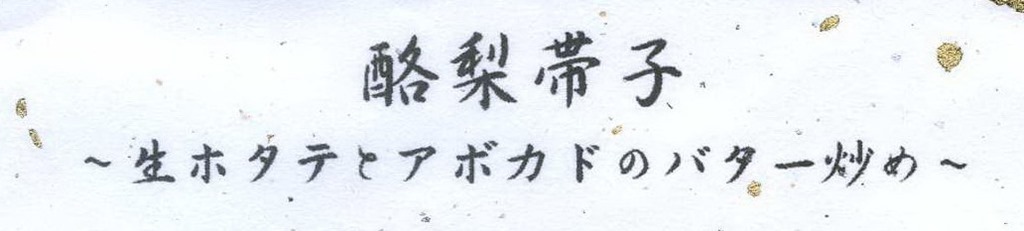 酪梨帯子
～生ホタテとアボカドのバター炒め～